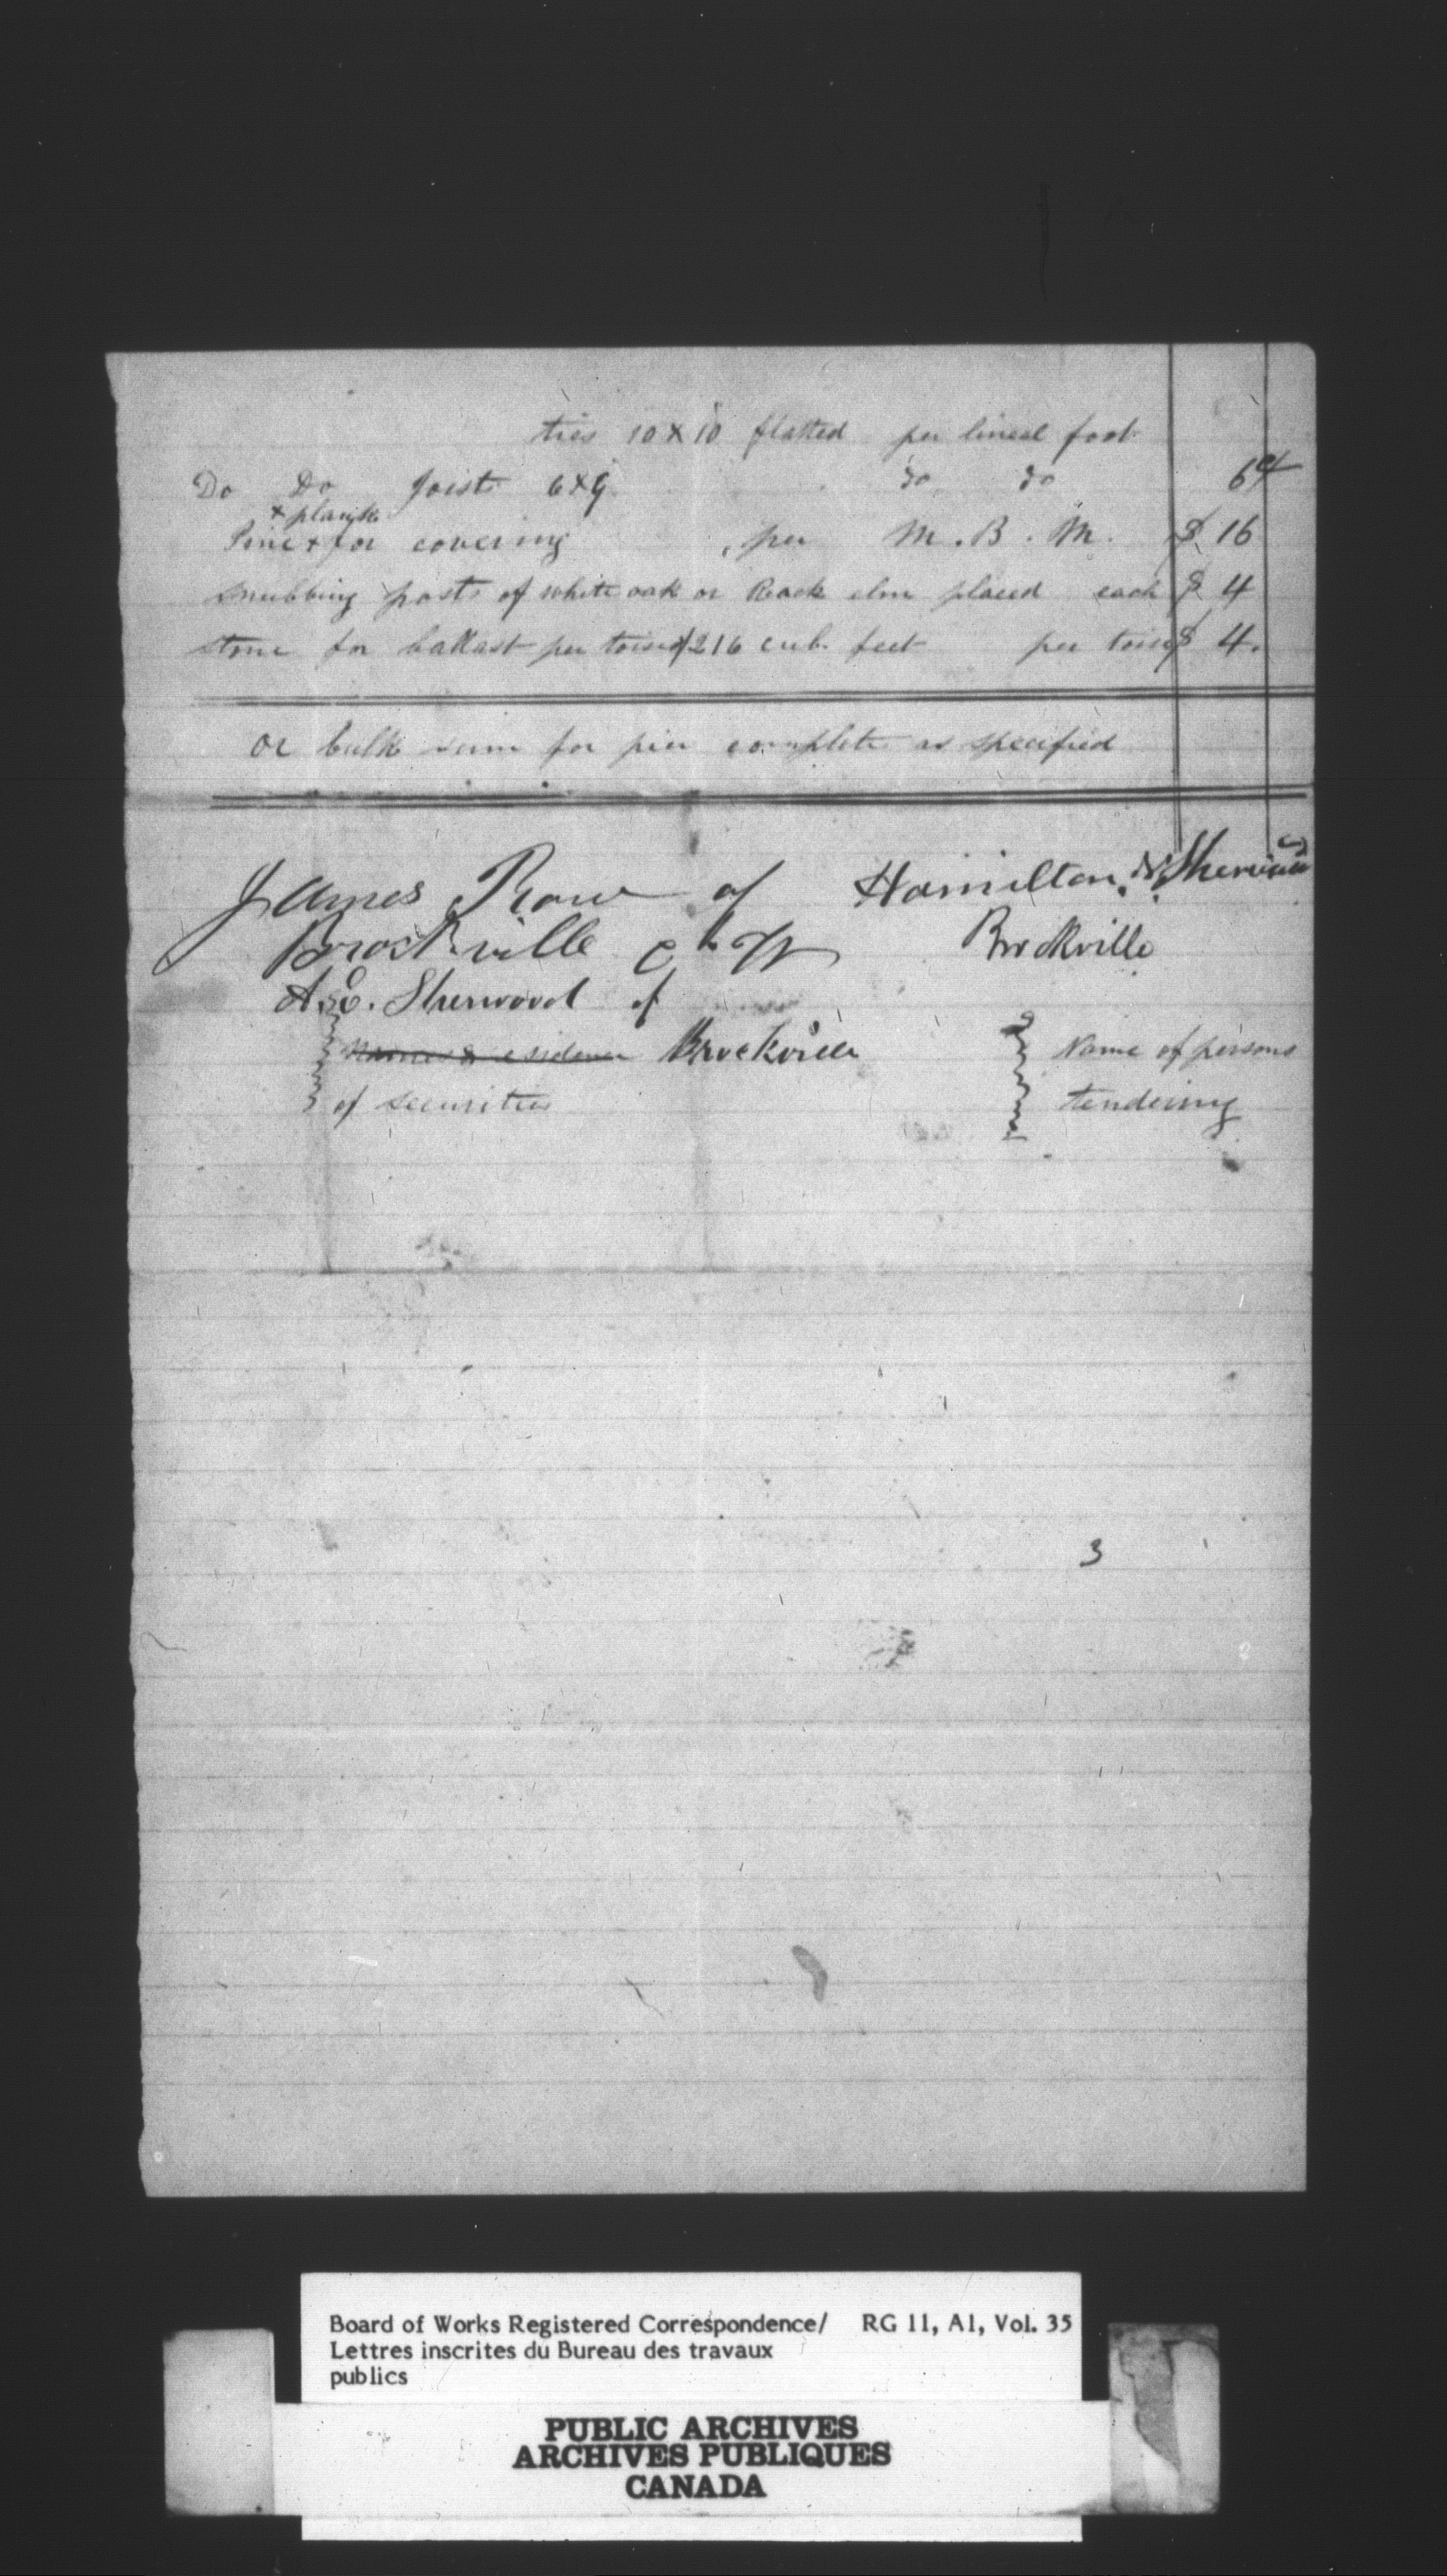 ties 10 x 10 flatted per lineal foot
Do Do Joists 6x9 do do 6¢
x plank
Pine x for covering , per M. B. M. $ 16
Snubbing posts of white oak or Rock elm placed each $ 4
Stone for ballast per toise of 216 cub. feet per toise $ 4.
Or bulk sum for pier complete as specified
James Row of Hamilton & Sherwood
Brockville C. W Brockville
A. E. Sherwood of
Names & residence Brockville Name of persons
of securities tendering
3
Board of Works Registered Correspondence/ RG 11, A1, Vol. 35
Lettres inscrites du Bureau des travaux
publics
PUBLIC ARCHIVES
ARCHIVES PUBLIQUES
CANADA